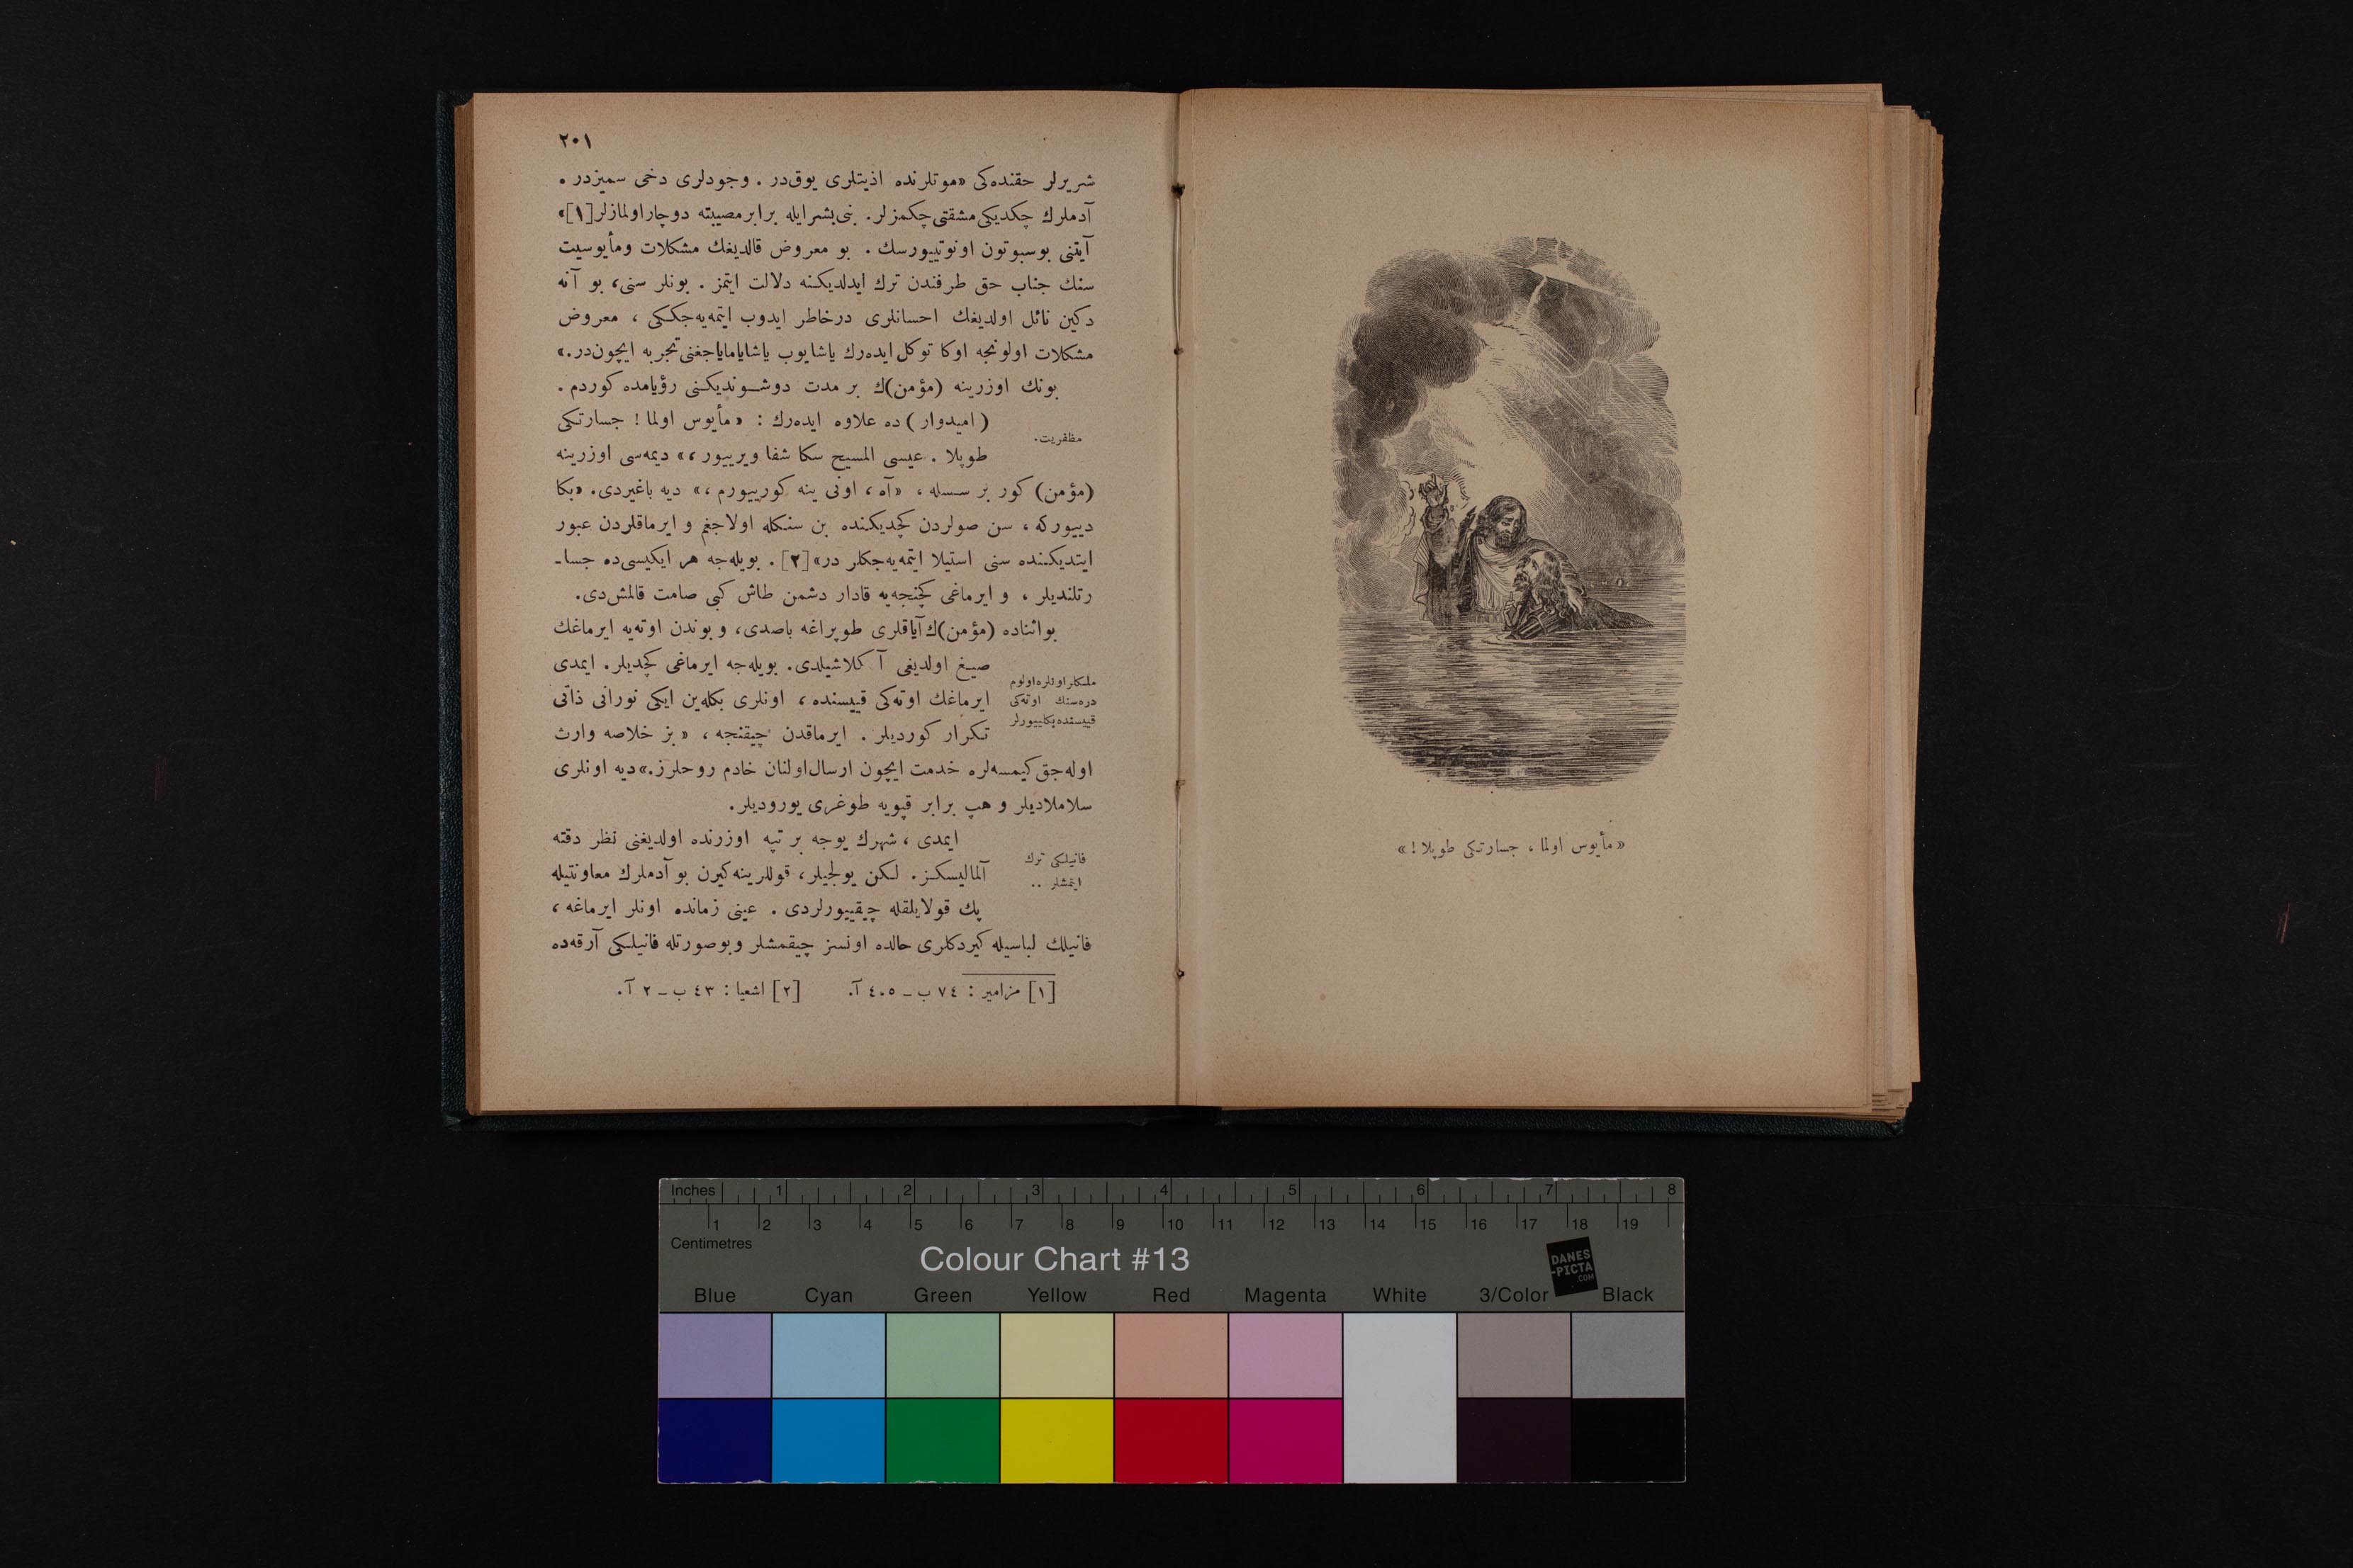 «مأیوس اولما ، جسارتکی طوپلا !»
٢٠١
شریرلر حقنده‌کی «موتلرنده اذیتلری یوق‌در . وجودلری دخی سمیزدر .
آدملرك چکدیکی مشقتی چکمزلر. بنی‌بشر ایله برابر مصیبته دوچار اولمازلر[١]»
آیتنی بوسبوتون اونوتییورسك . بو معروض قالدیغك مشکلات ومأیوسیت
سنك جناب حق طرفندن ترك ایدلدیکنه دلالت ایتمز . بونلر سنی، بو آنه
دکین نائل اولدیغك احسانلری درخاطر ایدوب ایتمه‌یه‌جککی ، معروض
مشکلات اولونجه اوکا توکل ایده‌رك یاشایوب یاشایامایاجغنی تجربه ایچون‌در.»
بونك اوزرینه (مؤمن)ك بر مدت دوشوندیکنی رؤیامده کوردم .
مظفریت.
( امیدوار ) ده علاوه ایده‌رك : «مأیوس اولما ! جسارتکی
طوپلا . عیسی المسیح سکا شفا ویرییور ،» دیمه‌سی اوزرینه
(مؤمن) کور بر سسله ، «آه ، اونی ینه کورییورم ،» دیه باغیردی. «بکا
دییورکه ، سن صولردن کچدیکنده بن سنکله اولاجغم و ایرماقلردن عبور
ایتدیکنده سنی استیلا ایتمه‌یه‌جکلر در»[٢] . بویله‌جه هر ایکیسی‌ده جسا-
رتلندیلر ، و ایرماغی کچنجه‌یه قادار دشمن طاش کبی صامت قالمش‌دی.
بواثناده (مؤمن)ك آیاقلری طوپراغه باصدی، و بوندن اوته‌یه ایرماغك
صیغ اولدیغی آکلاشیلدی. بویله‌جه ایرماغی کچدیلر. ایمدی
ملکلر اونلره اولوم
دره‌سنك اوته‌کی
قییسنده بکلییورلر
ایرماغك اوته‌کی قییسنده ، اونلری بکله‌ین ایکی نورانی ذاتی
تکرار کوردیلر . ایرماقدن چیقنجه ، «بز خلاصه وارث
اوله‌جق کیمسه‌لره خدمت ایچون ارسال‌اولنان خادم روحلرز.» دیه اونلری
سلاملادیلر و هپ برابر قپویه طوغری یورودیلر.
ایمدی ، شهرك یوجه بر تپه اوزرنده اولدیغنی نظر دقته
فانیلکی ترك
ایتمشلر ..
آلمالیسکز. لکن یولجیلر، قوللرینه‌کیرن بو آدملرك معاونتیله
پك قولایلقله چیقییورلردی . عینی زمانده اونلر ایرماغه ،
فانیلك لباسیله کیردکلری حالده اونسز چیقمشلر وبوصورتله فانیلکی آرقه‌ده
[١] مزامیر : ٧٤ ب ــ ٤٠٥ آ.
[٢] اشعیا : ٤٣ ب ــ ٢ آ.
Inches 1 2 3 4 5 6 7 8
1 2 3 4 5 6 7 8 9 10 11 12 13 14 15 16 17 18 19
Centimetres
Colour Chart #13
DANES
-PICTA
.COM
Blue Cyan Green Yellow Red Magenta White 3/Color Black